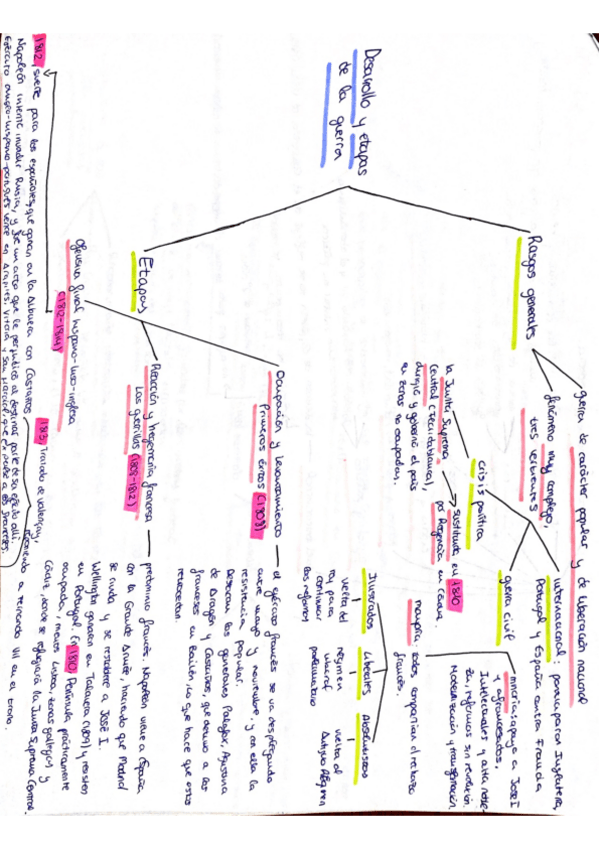 Desarrollo y etapas
de la guerra
Rasgos generales
guerra de carácter popular y de liberación nacional
fenómeno muy complejo,
tres vertientes
internacional:
Portugal y España contra Francia
guerra civil
minorías apoya a José I
y afrancesados,
Intelectuales y alta
reformas sin revolución.
Modernización y
mayoría: todos comparten el rechazo
francés.
Ilustrados
vuelta del
rey para
continuar
las reformas
Liberales
régimen
liberal
parlamentario
Absolutistas
vuelta al
Antiguo Régimen
crisis política
la Junta Suprema
Central (Floridablanca),
dirigió y gobernó el país
en zonas no ocupadas.
sustituida en 1810
por Regencia en Cádiz.
Etapas
Ocupación y levantamiento
Primeros éxitos (1808)
el ejército francés se va desplegando
entre mayo y noviembre, y con ello la
resistencia popular.
Destacan los generales Palafox, Agustina
de Aragón y Castaños, que derrotó a los
franceses en Bailén lo que hace que estos
retrocedan.
Reacción y hegemonía francesa
Las guerrillas (1808-1812)
predominio francés. Napoleón viene a España
con la Grande Armée, haciendo que Madrid
se rinda y se restablece a José I.
Wellington ganaron en Talavera (1809) y resisten
en Portugal. En 1810 Península prácticamente
ocupada, menos Lisboa, zonas gallegas y
Cádiz, donde se refugiará la Junta Suprema Central.
Ofensiva final hispano-luso-inglesa
(1812-1814)
1812, suerte para los españoles, que ganan en la Albuera con Castaños.
Napoleón intentó invadir Rusia, y fue un acto que le perjudicó al destinar parte de su ejército allí.
Ejército anglo-hispano-portugués vence en Arapiles, Vitoria y San Marcial, que expulsa a los franceses.
1813 Tratado de Valençay,
Fernando VII en el trono.